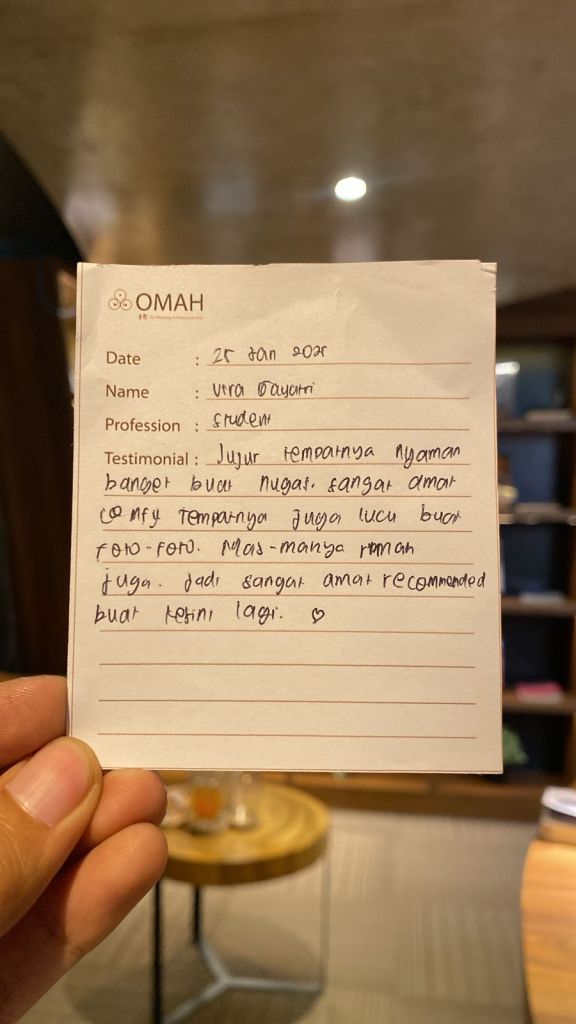 OMAH
Date : 25 Jan 2025
Name : Vira Gayatri
Profession : Student
Testimonial : Jujur tempatnya nyaman
banget buat nugas. sangat amat
comfy Tempatnya juga lucu buat
foto-foto. Mas-masnya ramah
juga. Jadi sangat amat recommended
buat kesini lagi. ♡